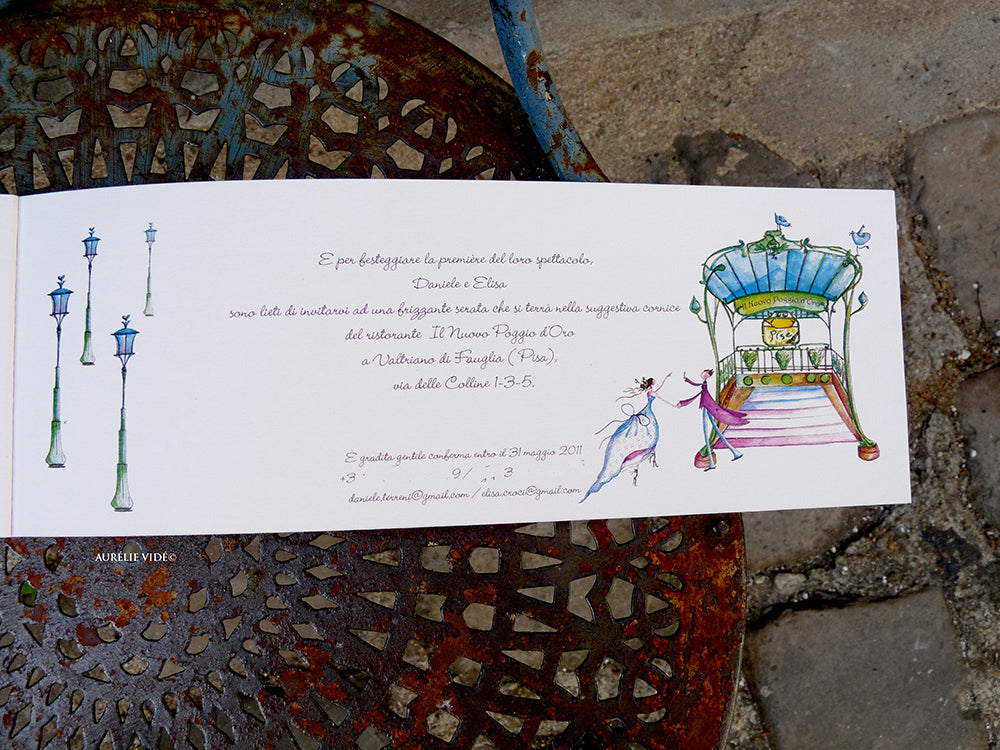 E per festeggiare la première del loro spettacolo,
Daniele e Elisa
sono lieti di invitarvi ad una frizzante serata che si terrà nella suggestiva cornice
del ristorante Il Nuovo Poggio d'Oro
a Valtriano di Fauglia (Pisa),
via delle Colline 1-3-5.
È gradita gentile conferma entro il 31 maggio 2011
+3 9/ 3
daniele.terreni@gmail.com / elisa.croci@gmail.com
Il Nuovo Poggio d'Oro
Pisa
AURÉLIE VIDÉ©